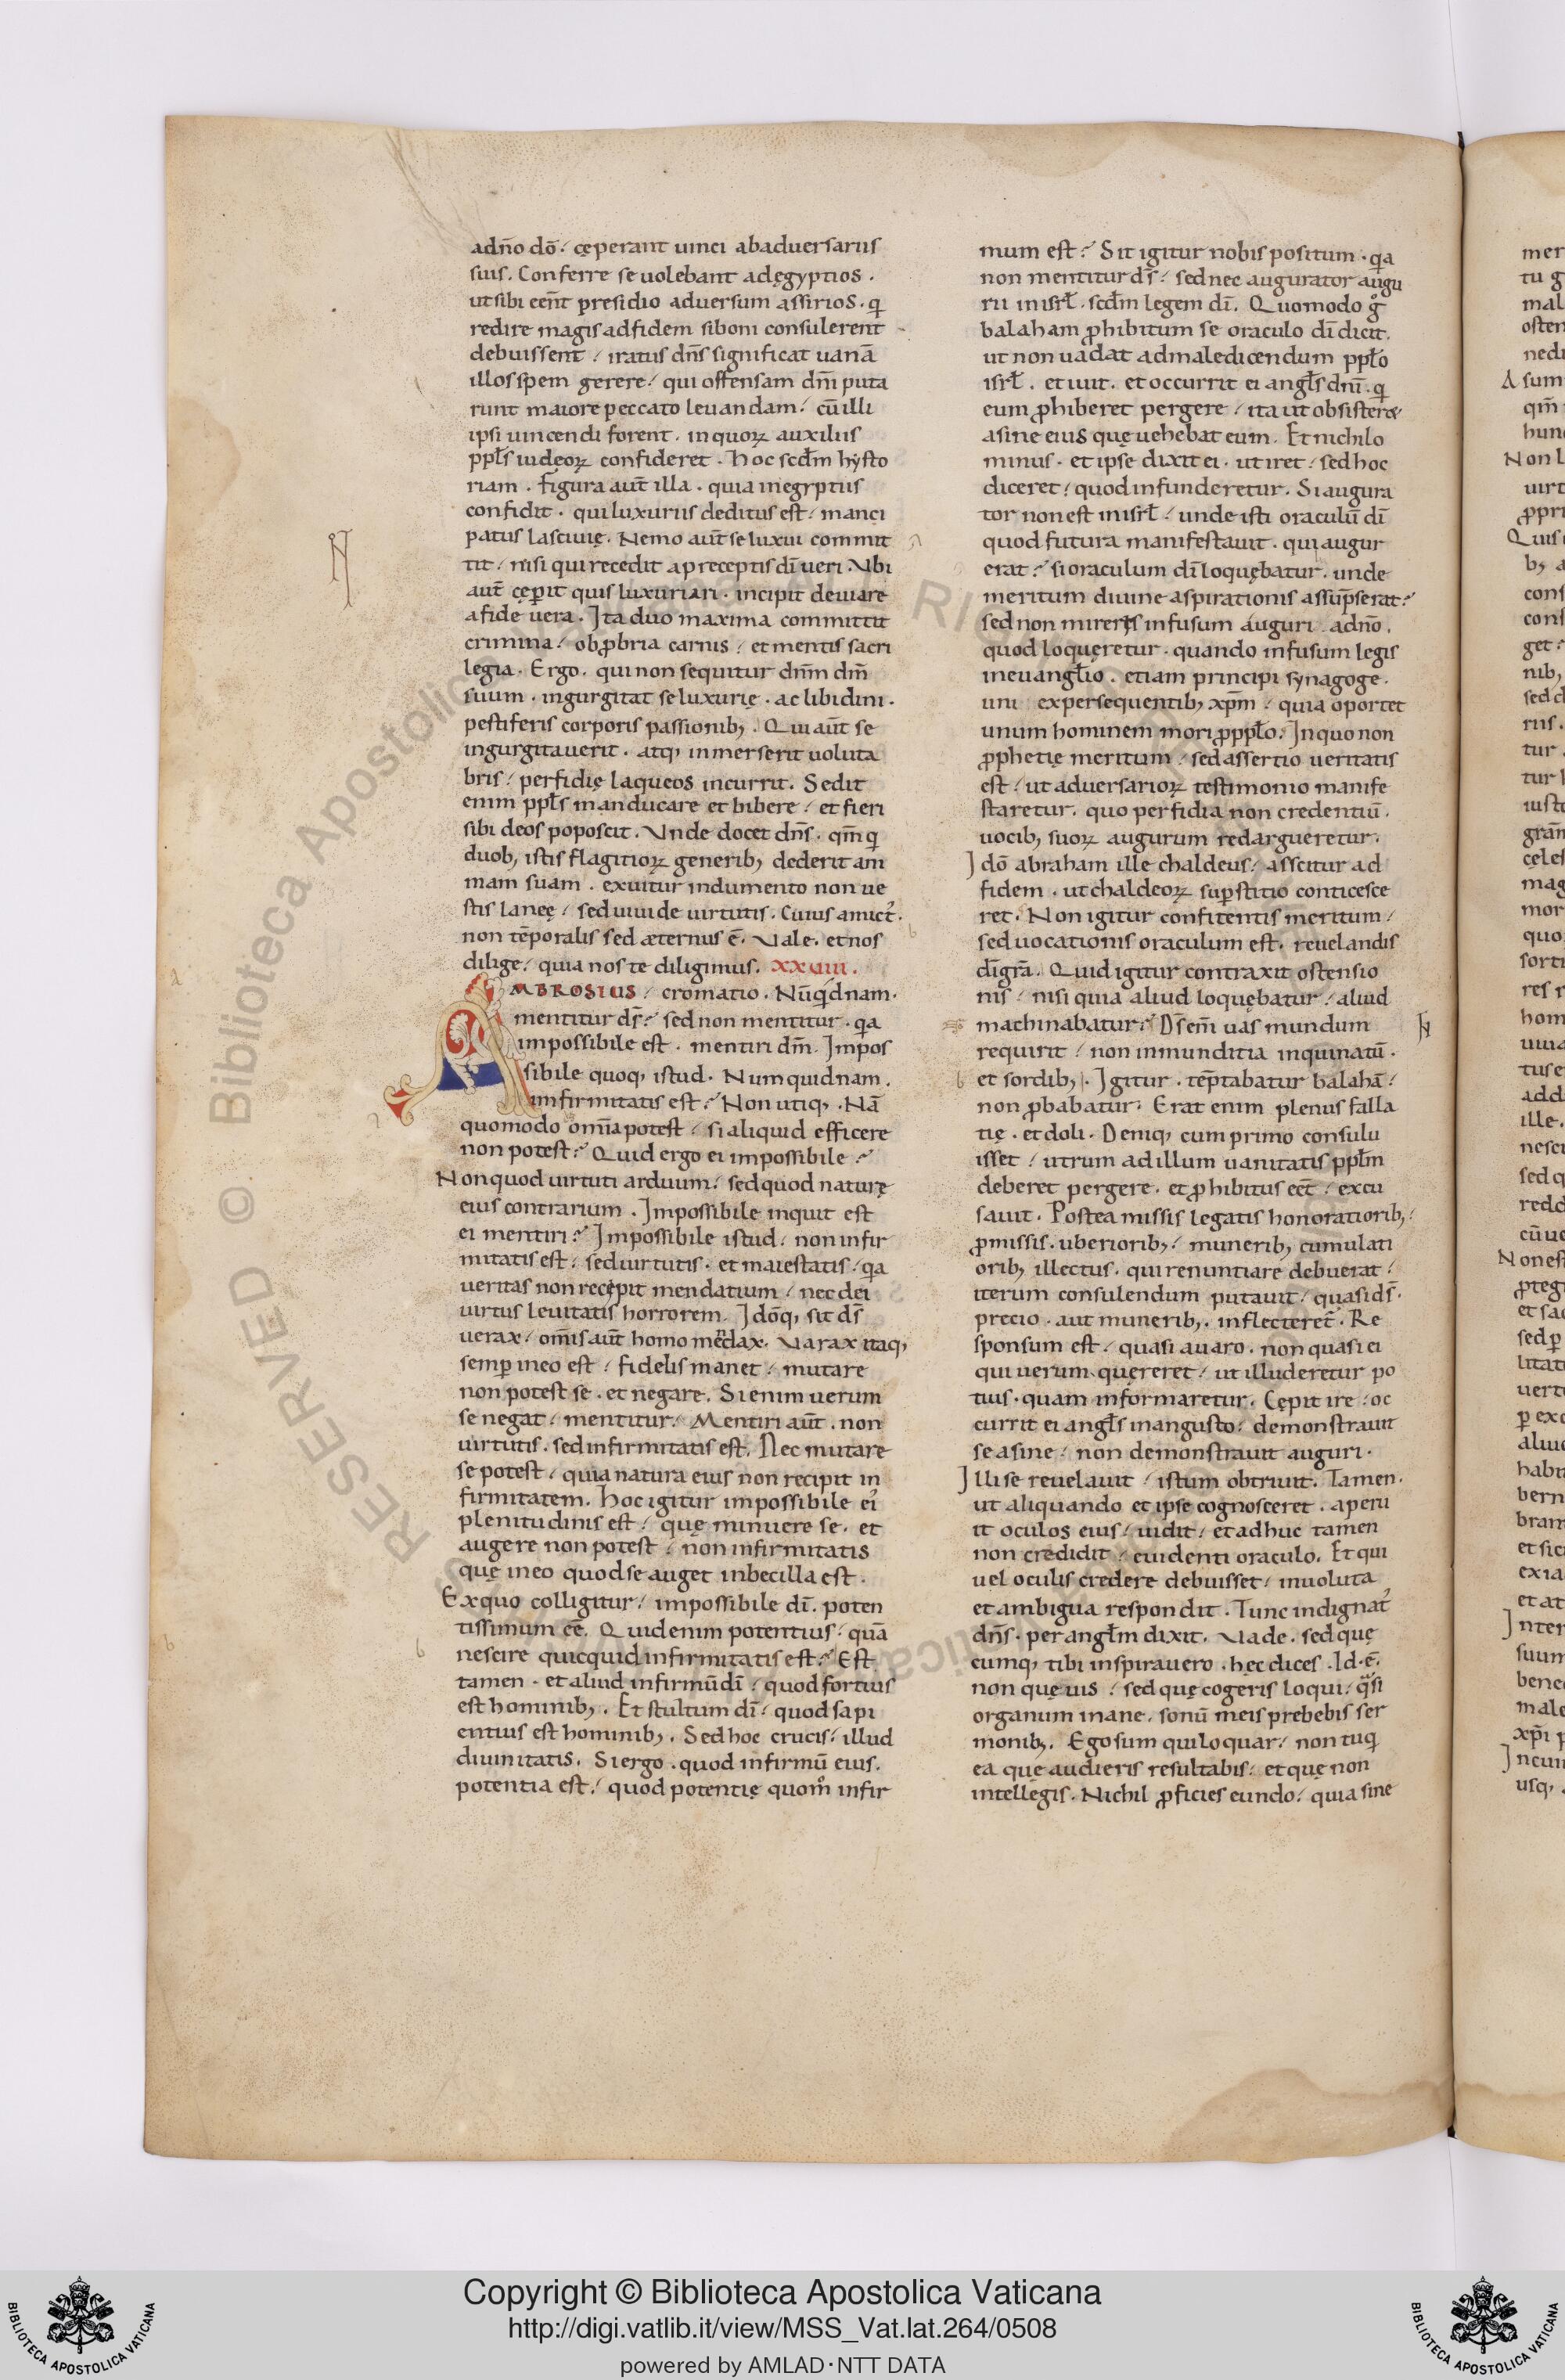 adn̄o dō. cęperant uinci abaduersariis
suis. Conferre se uolebant adęgyptios.
utsibi eēnt presidio aduersum assirios. q̇
redire magis adfidem siboni consulerent
debuissent / iratus dn̄s significat uanā
illos spem gerere / qui offensam dn̄i puta
runt maiore peccato leuandam / cū illi
ipsi uincendi forent. inquoꝝ auxiliis
ppl̄s iudęoꝝ confideret. Hoc scd̄m hysto
riam. figura aūt illa. quia inegyptiis
confidit. qui luxuriis deditus est / manci
patus lasciuię. Nemo aūt se luxui commit
tit / nisi qui recedit apreceptis dī ueri. Vbi
aūt cęperit quis luxuriari. incipit deuiare
afide uera. Ita duo maxima committit
crimina / obꝓbria carnis / et mentis sacri
legia. Ergo. qui non sequitur dn̄m dm̄
suum. ingurgitat se luxurię. ac libidini.
pestiferis corporis passionibꝫ. Qui aūt se
ingurgitauerit. atqꝫ inmerserit uoluta
bris / perfidię laqueos incurrit. Sedit
enim ppl̄s manducare et bibere / et fieri
sibi deos poposcit. Vnde docet dn̄s. qm̄ q̇
duobꝫ istis flagitioꝝ generibꝫ dederit ani
mam suam. exuitur indumento non ue
stis lanęę / sed uiuide uirtutis. Cuius amict᾿.
non tēporalis sed æternus ē. Vale. et nos
dilige / quia nos te diligimus. XXVIIII.
AMBROSIUS / cromatio. Nūqdnam.
mentitur ds̄? sed non mentitur. qa
impossibile est. mentiri dm̄. Impos
sibile quoqꝫ istud. Numquidnam.
infirmitatis est? Non utiqꝫ. Nā
quomodo omīa potest / si aliquid efficere
non potest? Quid ergo ei impossibile?
Non quod uirtuti arduum / sed quod naturę
eius contrarium. Impossibile inquit est
ei mentiri? Impossibile istud / non infir
mitatis est / sed uirtutis. et maiestatis / qa
ueritas non recępit mendatium / nec dei
uirtus leuitatis horrorem. Idōqꝫ sit ds̄
uerax / om̄is aūt homo mēdax. Varax itaqꝫ
semꝑ ineo est / fidelis manet / mutare
non potest se. et negare. Si enim uerum
se negat / mentitur. Mentiri aūt. non
uirtutis. sed infirmitatis est. Nec mutare
se potest / quia natura eius non recipit in
firmitatem. Hoc igitur impossibile ei᾿
plenitudinis est / quę minuere se. et
augere non potest / non infirmitatis
quę ineo quod se auget inbecilla est.
Ex quo colligitur / impossibile dī. poten
tissimum eē. Quid enim potentius / quā
nescire quicquid infirmitatis est? Est
tamen. et aliud infirmū dī / quod fortius
est hominibꝫ. Et stultum dī / quod sapi
entius est hominibꝫ. Sed hoc crucis / illud
diuinitatis. Si ergo. quod infirmū eius.
potentia est / quod potentię quom̊ infir
mum est? Sit igitur nobis positum. qa
non mentitur ds̄ / sed nec augurator augu
rii inisrl̄. scd̄m legem dī. Quomodo g̊
balaham ꝓhibitum se oraculo dī dicit.
ut non uadat admaledicendum ppl̄o
isrl̄. et iuit. et occurrit ei angl̄s dn̄i. q̇
eum ꝓhiberet pergere / ita ut obsisteret
asine eius quę uehebat eum. Et nichilo
minus. et ipse dixit ei. ut iret / sed hoc
diceret / quod infunderetur. Si augura
tor non est inisrl̄ / unde isti oraculū dī
quod futura manifestauit. qui augur
erat? si oraculum dī loquębatur. unde
meritum diuine aspirationis assūpserat?
sed non mireris infusum auguri. adn̄o.
quod loqueretur. quando infusum legis
ineuangl̄io. etiam principi synagoge.
uni expersequentibꝫ xp̄m / quia oportet
unum hominem mori ꝓppl̄o. Inquo non
ꝓphetię meritum / sed assertio ueritatis
est / ut aduersarioꝝ testimonio manife
staretur. quo perfidia non credentiū.
uocibꝫ suoꝝ augurum redargueretur.
Idō abraham ille chaldeus / asscitur ad
fidem. ut chaldeoꝝ suꝑstitio conticesce
ret. Non igitur confitentis meritum /
sed uocationis oraculum est. reuelandis
dī grā. Quid igitur contraxit ostensio
nis / nisi quia aliud loquębatur / aliud
machinabatur? Ds̄ em̄ uas mundum
requirit / non inmunditia inquinatū.
et sordibꝫ. Igitur. tēptabatur balahā /
non ꝓbabatur. Erat enim plenus falla
tię. et doli. Deniqꝫ cum primo consulu
isset / utrum ad illum uanitatis ppl̄m
deberet pergere. et ꝓhibitus eēt / excu
sauit. Postea missis legatis honoratioribꝫ /
ꝓmissis. uberioribꝫ / muneribꝫ cumulati
oribꝫ illectus. qui renuntiare debuerat /
iterum consulendum putauit / quasi ds̄.
precio. aut muneribꝫ. inflecteret̄. Re
sponsum est / quasi auaro. non quasi ei
qui uerum quęreret / ut illuderetur po
tius. quam informaretur. Cępit ire / oc
currit ei angl̄s inangusto / demonstrauit
se asine / non demonstrauit auguri.
Illi se reuelauit / istum obtriuit. Tamen.
ut aliquando et ipse cognosceret. aperu
it oculos eius / uidit / et adhuc tamen
non credidit / euidenti oraculo. Et qui
uel oculis credere debuisset / inuoluta
et ambigua respondit. Tunc indignat᾿
dn̄s. per angl̄m dixit. Vade. sed quę
cumqꝫ tibi inspirauero. hec dices. Id. ē.
non quę uis / sed quę cogeris loqui / qͣsi
organum inane. sonū meis prebebis ser
monibꝫ. Ego sum qui loquar / non tu q̇
ea quę audieris resultabis / et quę non
intellegis. Nichil ꝓficies eundo / quia sine
Copyright © Biblioteca Apostolica Vaticana
http://digi.vatlib.it/view/MSS_Vat.lat.264/0508
powered by AMLAD·NTT DATA